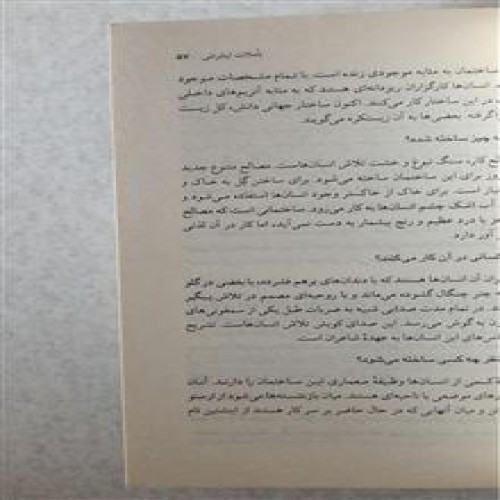 تأملات اینترنتی ۵۷
ساختمان به مثابه موجودی زنده است. با تمام مشخصات موجود
انسان‌ها کارگزاران ریزدانه‌ای هستند که به مثابه آنزیم‌های داخلی
در این ساختار کار می‌کنند. اکنون ساختار جهانی دانش، کل زیست
گرفته. بعضی‌ها به آن زیستکره می‌گویند.
چیز ساخته شده؟
کار، سنگ نبوغ و خشت تلاش انسان‌هاست. مصالح متنوع جدید
روز برای این ساختمان ساخته می‌شود. برای ساختن گِل به خاک و
است. برای خاک از خاکستر وجود انسان‌ها استفاده می‌شود و
آب اشک چشم انسان‌ها به کار می‌رود. ساختمانی است که مصالح
با درد عظیم و رنج بیشمار به دست نمی‌آید، اما کار در آن لذتی
آور دارد.
کسانی در آن کار می‌کنند؟
آن انسان‌ها هستند که با دندان‌های برهم فشرده، با بغضی در گلو
چنگال گشوده می‌ماند و با روحیه‌ای مصمم در تلاش پیگیر
در تمام مدت صدایی شبیه به ضربات طبل یکی از سمفونی‌های
به گوش می‌رسد. این صدای کوبش تلاش انسان‌هاست. تشریح
این انسان‌ها به عهدهٔ شاعران است.
چه کسی ساخته می‌شود؟
کسی از انسان‌ها وظیفهٔ معماری این ساختمان را دارند. آنان
موضعی یا ناحیه‌ای هستند. میان بازنشسته‌ها می‌شود از ارسطو
و میان آنهایی که در حال حاضر بر سر کار هستند از اینشتین نام